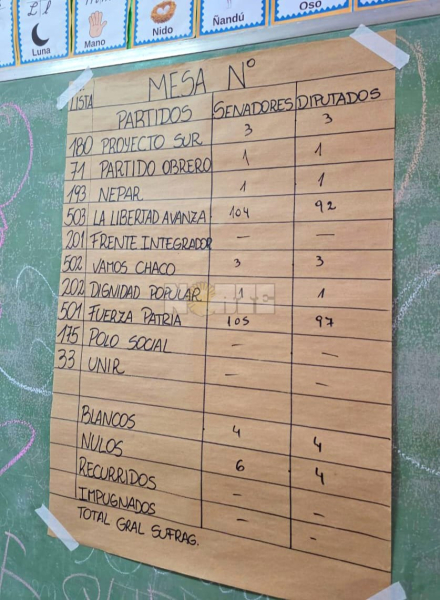 Luna
Mano
Nido
Ñandú
Oso
MESA Nº
LISTA PARTIDOS SENADORES DIPUTADOS
180 PROYECTO SUR 3 3
71 PARTIDO OBRERO 1 1
193 NEPAR 1 1
503 LA LIBERTAD AVANZA 104 92
201 FRENTE INTEGRADOR — —
502 VAMOS CHACO 3 3
202 DIGNIDAD POPULAR 1 1
501 FUERZA PATRIA 105 97
175 POLO SOCIAL — —
33 UNIR — —
BLANCOS 4 4
NULOS 6 4
RECURRIDOS — —
IMPUGNADOS — —
TOTAL GRAL SUFRAG.